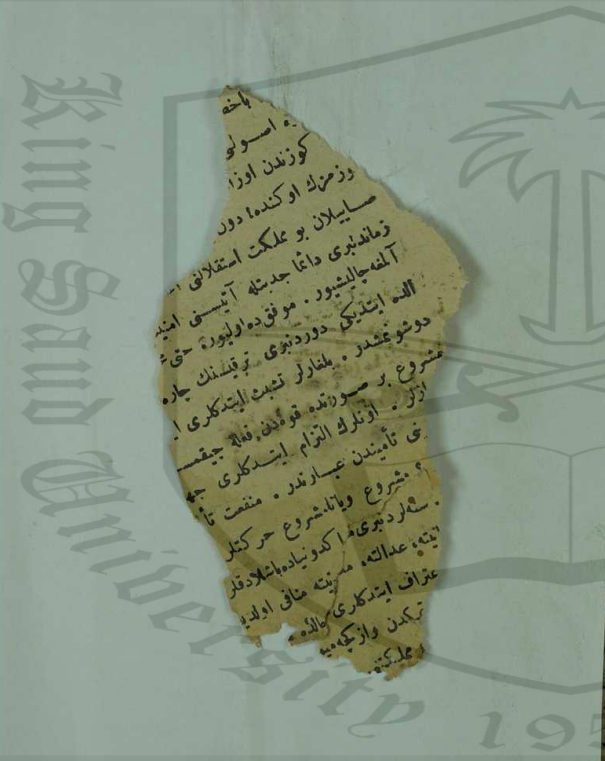 باخصـ
ـه اصولی
كوزندن اوزا
وزمزك اوكنده! دون
صاییلان بو مملكت استقلالنی
زماندنبری دائما جدیتله آتیسنی امید
آلمغه چالیشیور. موفق ده اولیور، حتی
الده ایتدیكی دوردنبری ترقیسنك چاره
دوشونمشدر. بلغارلر تشبث ایتدكلری ا
مشروع بر صورتده قوه دن فعله چیقمسـ
ازلر. اونلرك التزام ایتدكلری جهـ
ـنی تأمیندن عبارتدر. منفعت تأ
مشروع ویا نامشروع حركتلر
سنه لردنبری مآكدونیاده باشلادقلر
ـنیته، عدالته، مدنیته منافی اولدیـ
عتراف ایتدكلری حالده
تركدن وازكچه میو
مملكتمز
King Saud University 195